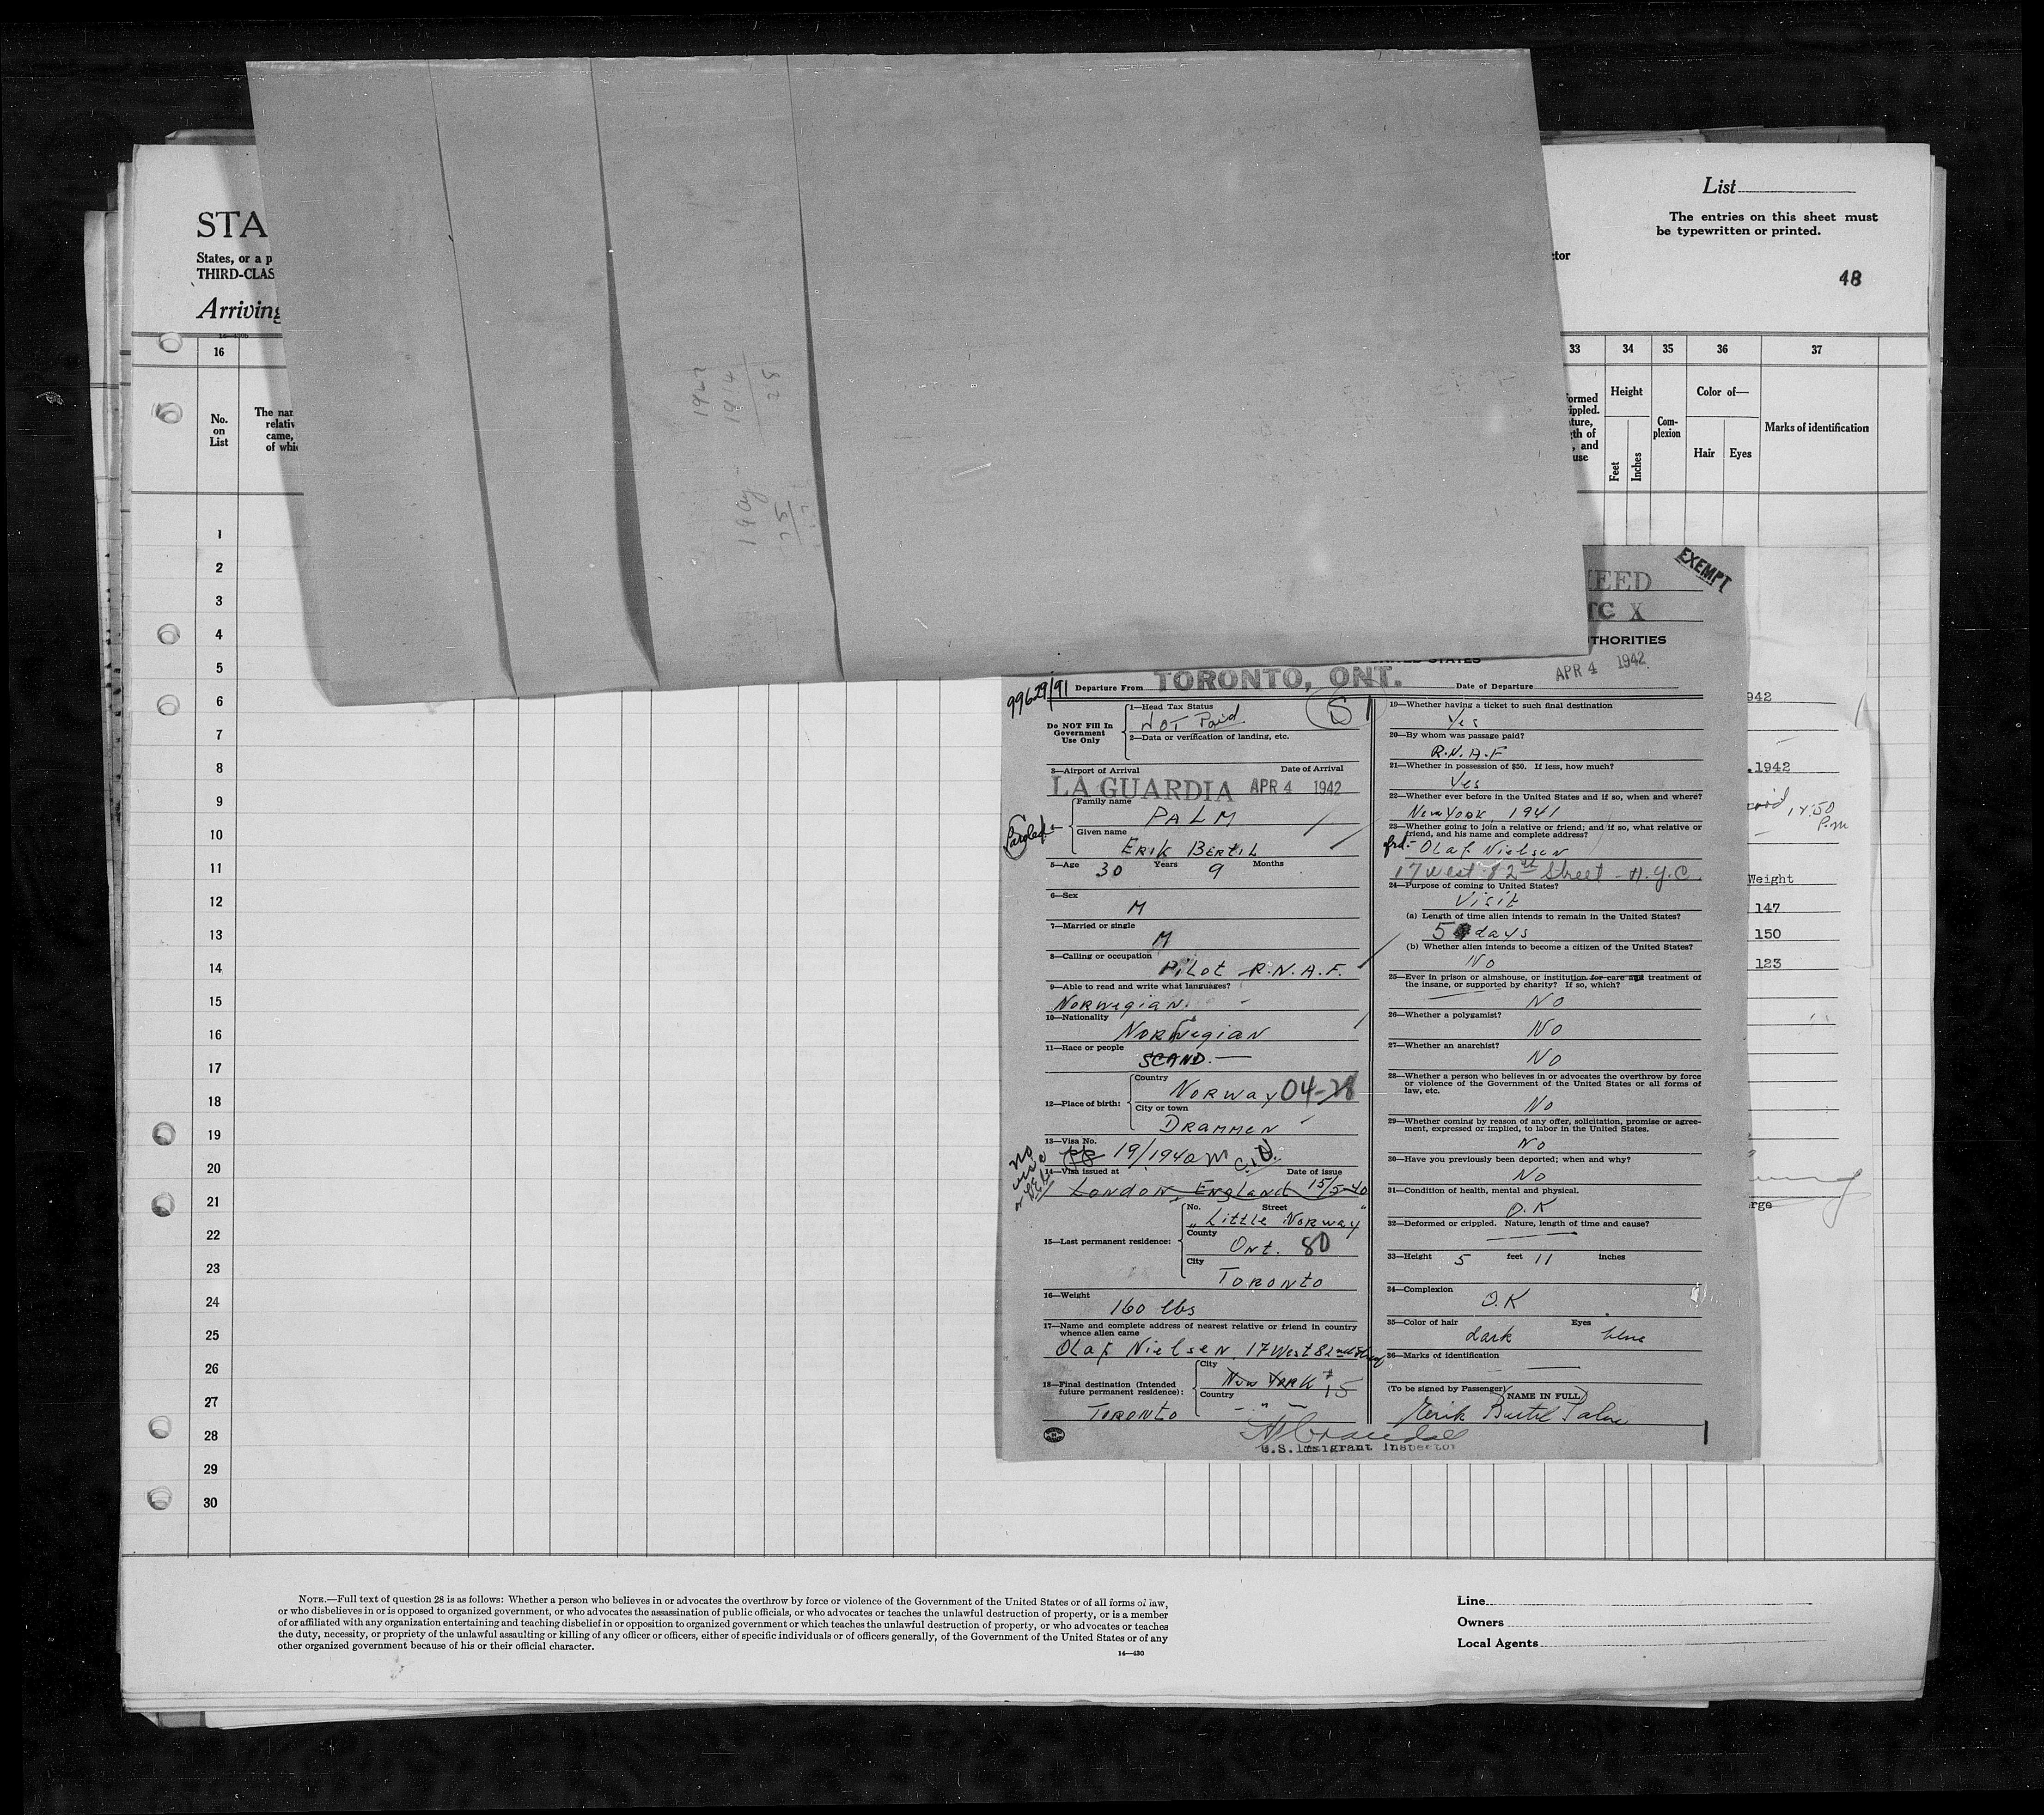 List
The entries on this sheet must
be typewritten or printed.
48
STA
States, or a p
THIRD-CLAS
Arriving
ctor
16
33 34 35 36 37
No.
on
List
The nar
relativ
came,
of whi
ormed
ippled.
ture,
gth of
, and
use
Height
Feet
Inches
Com-
plexion
Color of—
Hair
Eyes
Marks of identification
1
2
3
4
5
6
7
8
9
10
11
12
13
14
15
16
17
18
19
20
21
22
23
24
25
26
27
28
29
30
EXEMPT
EED
TC X
THORITIES
99629/91
Departure From TORONTO, ONT.
Date of Departure APR 4 1942
Do NOT Fill In
Government
Use Only
1—Head Tax Status
NOT Paid
2—Data or verification of landing, etc.
3—Airport of Arrival Date of Arrival
LA GUARDIA APR 4 1942
Family name
PALM
Given name
ERIK BERTIL
5—Age 30 Years 9 Months
6—Sex
M
7—Married or single
M
8—Calling or occupation
Pilot R.N.A.F.
9—Able to read and write what languages?
Norwegian
10—Nationality
Norwegian
11—Race or people
SCAND.
12—Place of birth:
Country
Norway 04-28
City or town
DRAMMEN
13—Visa No.
19/1940
14—Visa issued at Date of issue
London, England 15/5-40
15—Last permanent residence:
No. Street
"Little Norway"
County
Ont. 80
City
Toronto
16—Weight
160 lbs
17—Name and complete address of nearest relative or friend in country
whence alien came
Olaf Nielsen 17 West 82nd Street
18—Final destination (Intended
future permanent residence):
City
New York
Country
— " —
Toronto
19—Whether having a ticket to such final destination
Yes
20—By whom was passage paid?
R.N.A.F
21—Whether in possession of $50. If less, how much?
Yes
22—Whether ever before in the United States and if so, when and where?
New York 1941
23—Whether going to join a relative or friend; and if so, what relative or
friend, and his name and complete address?
frd- Olaf Nielsen
17 West 82nd Street - N.Y.C.
24—Purpose of coming to United States?
Visit
(a) Length of time alien intends to remain in the United States?
5 days
(b) Whether alien intends to become a citizen of the United States?
No
25—Ever in prison or almshouse, or institution for care and treatment of
the insane, or supported by charity? If so, which?
No
26—Whether a polygamist?
No
27—Whether an anarchist?
No
28—Whether a person who believes in or advocates the overthrow by force
or violence of the Government of the United States or all forms of
law, etc.
No
29—Whether coming by reason of any offer, solicitation, promise or agree-
ment, expressed or implied, to labor in the United States.
No
30—Have you previously been deported; when and why?
No
31—Condition of health, mental and physical.
O.K
32—Deformed or crippled. Nature, length of time and cause?
33—Height 5 feet 11 inches
34—Complexion
O.K
35—Color of hair Eyes
dark blue
36—Marks of identification
(To be signed by Passenger) (NAME IN FULL)
Erik Bertil Palm
U.S. Immigrant Inspector
942
.1942
12:50
P.m
Weight
147
150
123
arge
NOTE.—Full text of question 28 is as follows: Whether a person who believes in or advocates the overthrow by force or violence of the Government of the United States or of all forms of law,
or who disbelieves in or is opposed to organized government, or who advocates the assassination of public officials, or who advocates or teaches the unlawful destruction of property, or is a member
of or affiliated with any organization entertaining and teaching disbelief in or opposition to organized government or which teaches the unlawful destruction of property, or who advocates or teaches
the duty, necessity, or propriety of the unlawful assaulting or killing of any officer or officers, either of specific individuals or of officers generally, of the Government of the United States or of any
other organized government because of his or their official character.
14—430
Line
Owners
Local Agents